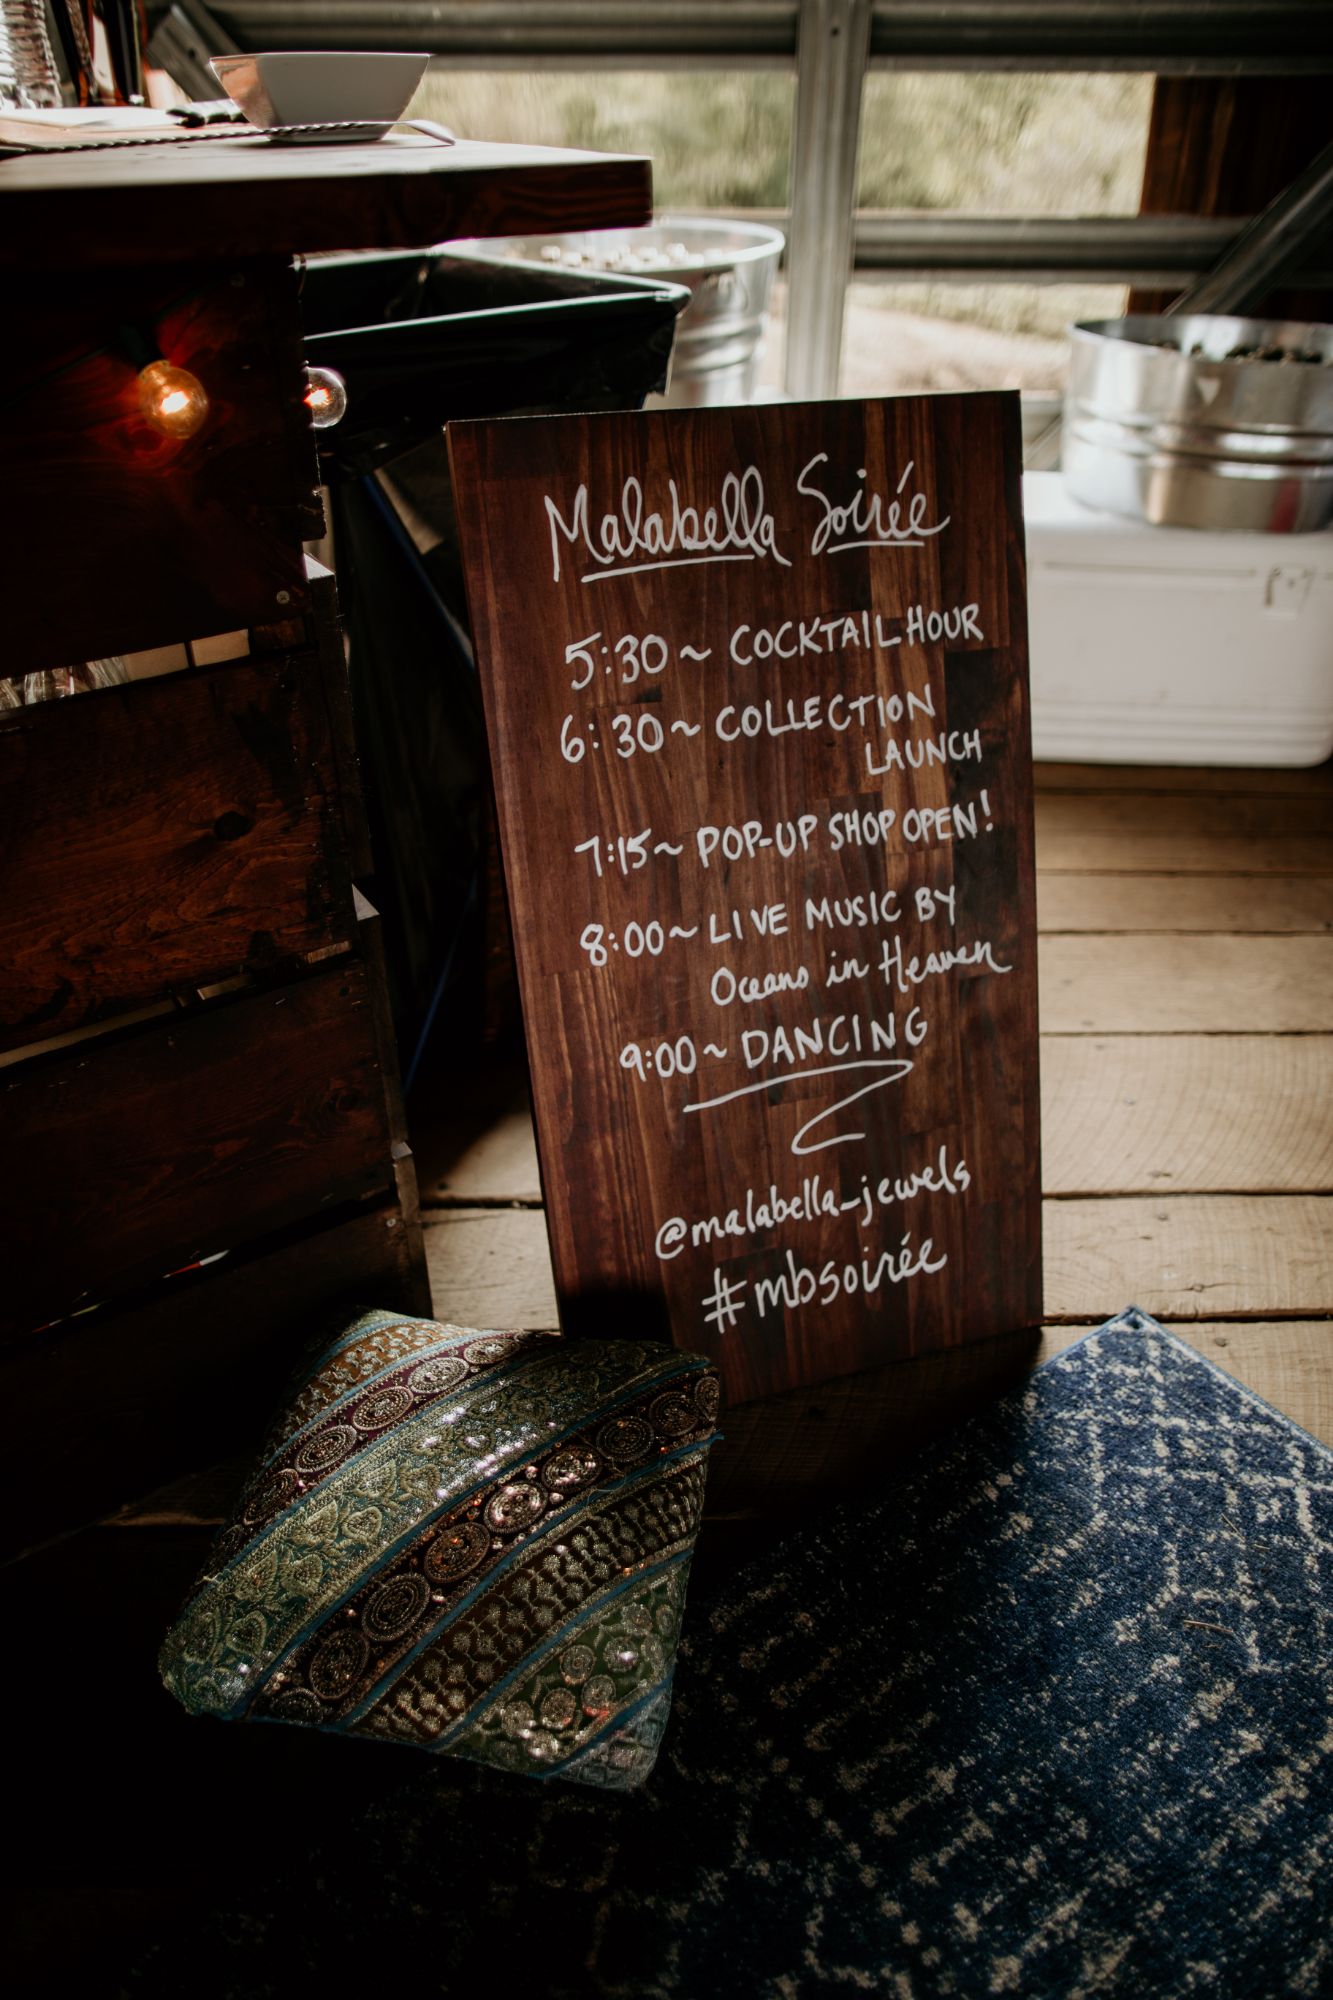 Malabella Soirée
5:30~ COCKTAIL HOUR
6:30~ COLLECTION
LAUNCH
7:15~ POP-UP SHOP OPEN!
8:00~ LIVE MUSIC BY
Oceans in Heaven
9:00~ DANCING
@malabella_jewels
#mbsoirée